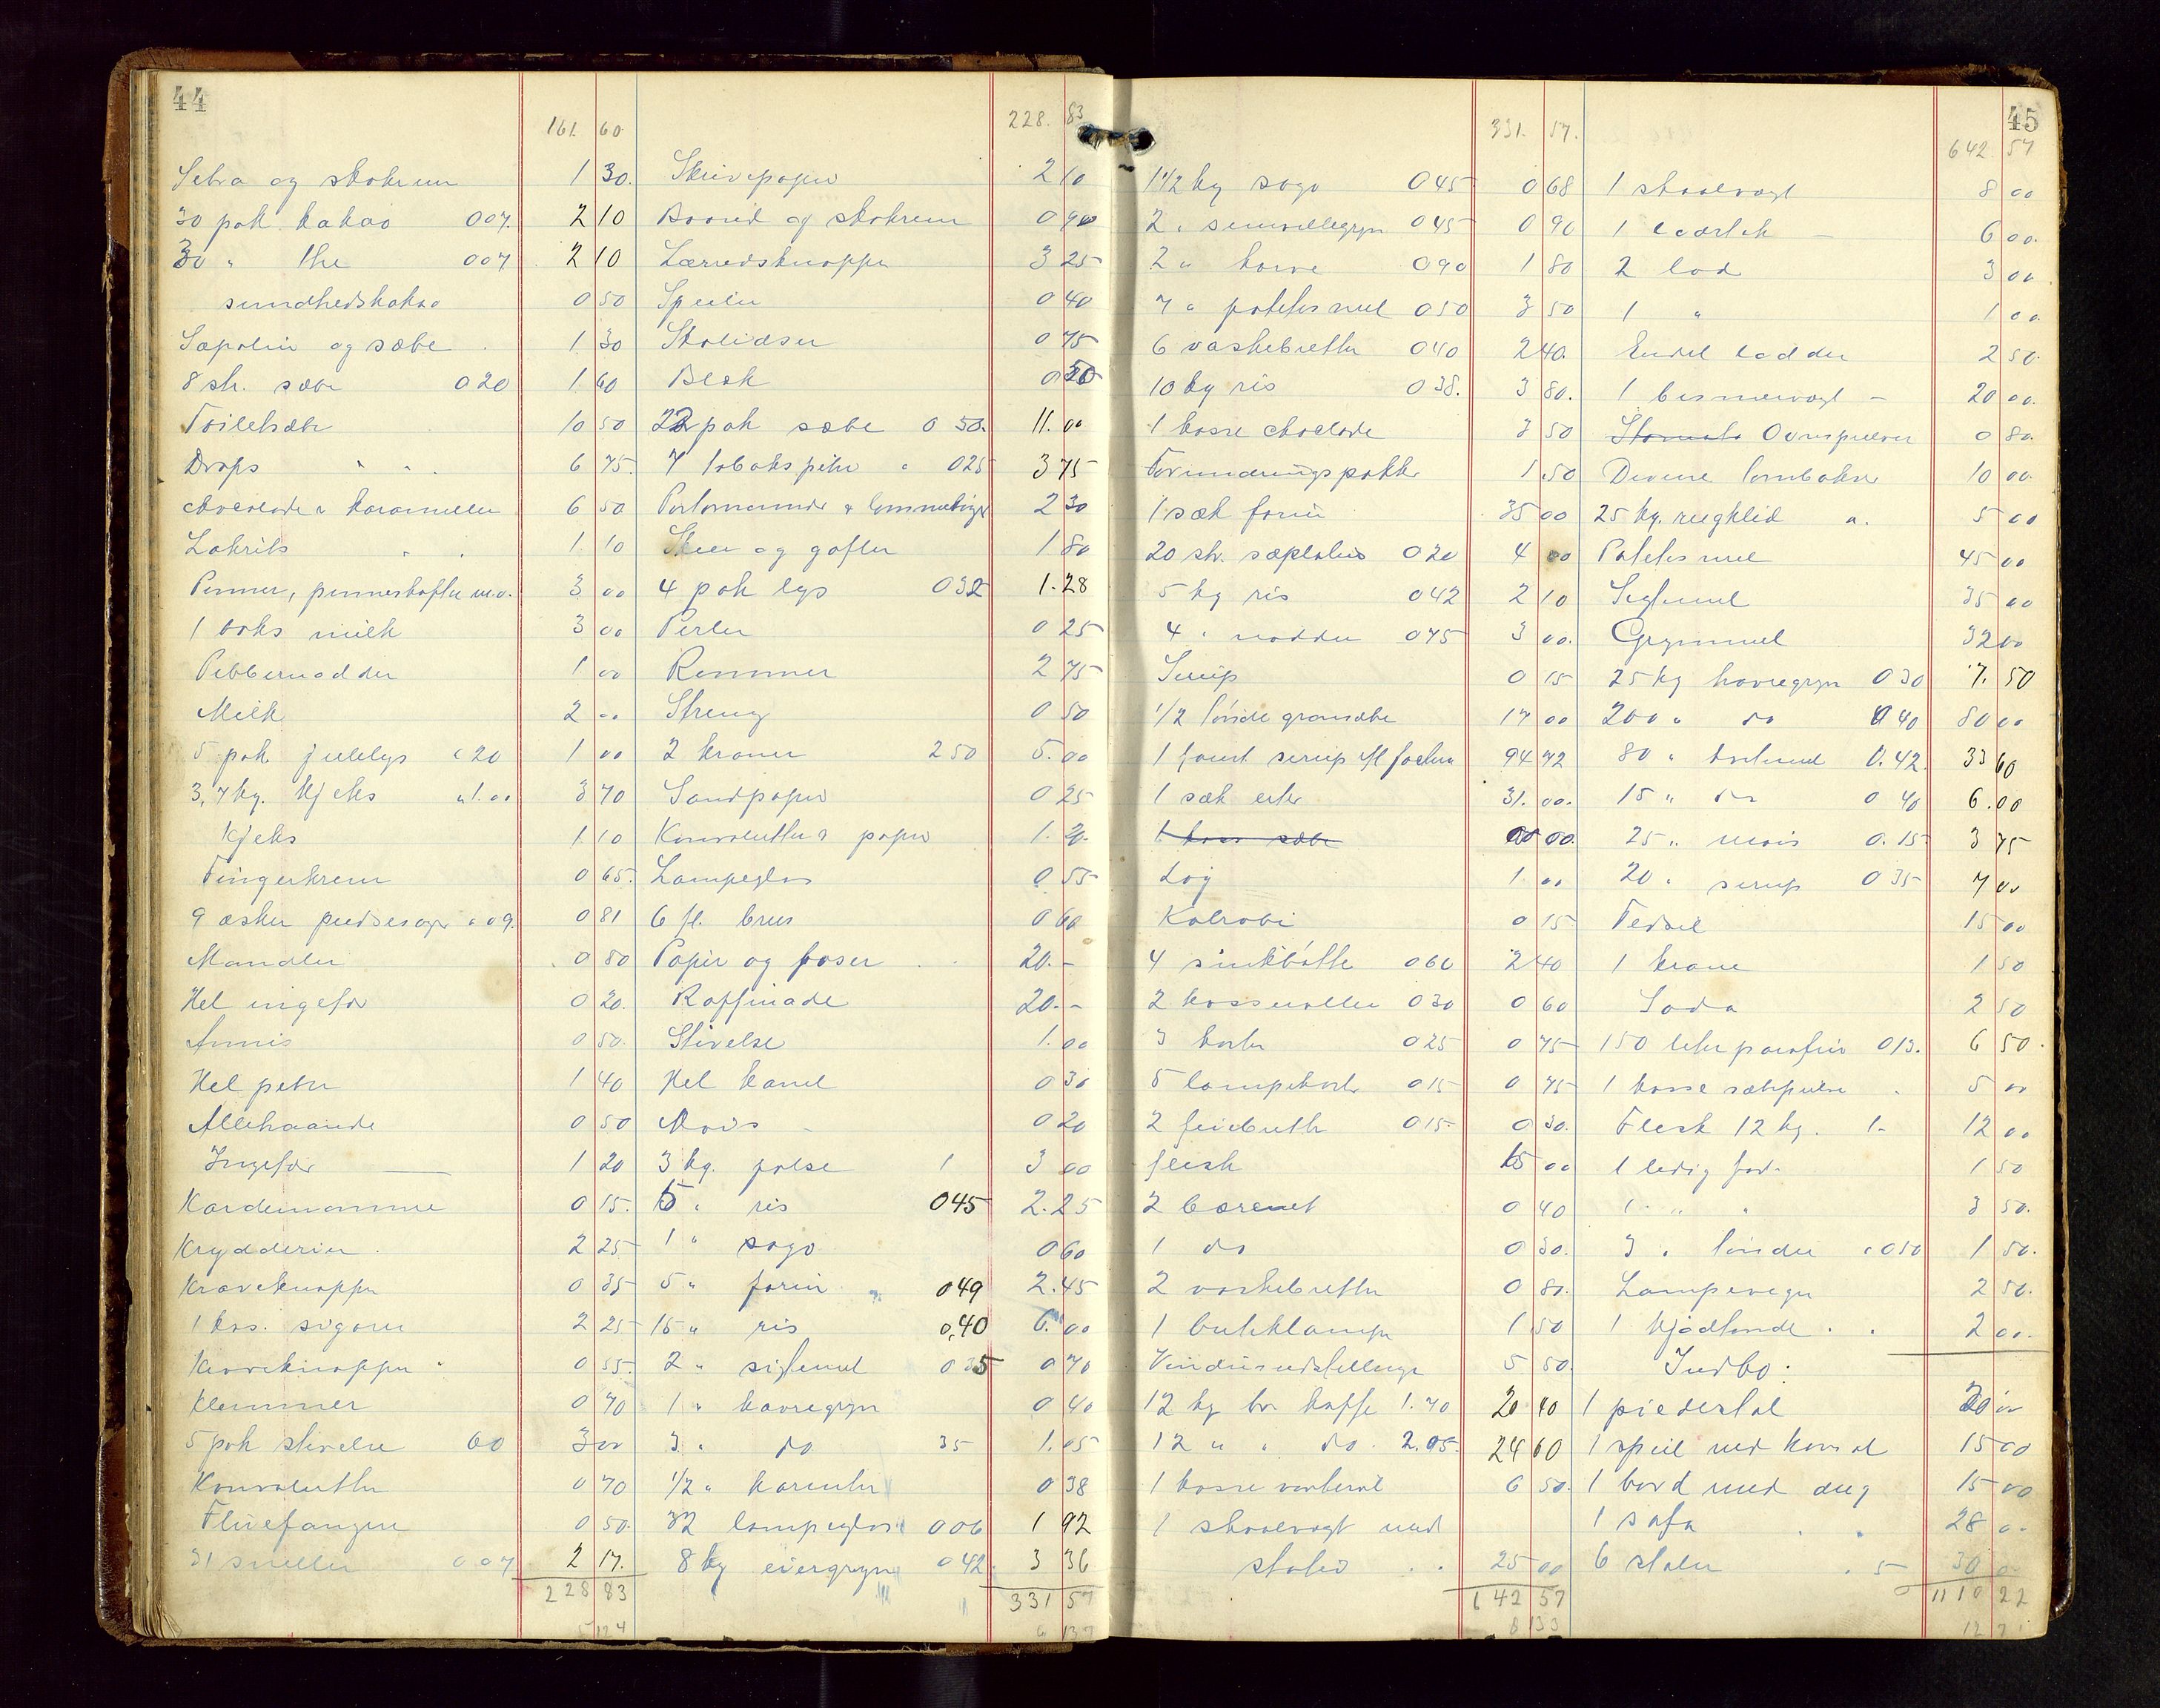 44
161. 60
Sebra og skokrem 1 30.
30 pak kakao 007. 2 10
30 " the 007 2 10
sundhedskakao 0 50
Sæpolin og sæbe 1 30
8 stk. sæbe 020 1 60
Toiletsæbe 10 50
Drops " " 6 75.
Chocolade & karameller 6 50
Lakrits " " 1 10
Penner, penneskafter m.v. 3 00
1 boks milk 3 00
Pebbernødder 1 00
Milk 2 00
5 pak julelys " 20 1 00
3,7 kg. kjeks " 1.00 3 70
Kjeks 1 10
Fingerkrem 0 65.
9 æsker pudsesager " 09. 0 81
Mandler 0 80
Hel ingefær 0 20.
Annis 0 50.
Hel peber 1 40
Allehaande 0 50
Ingefær 1 20
Kardemomme 0 15.
Krydderier 2 25
Kraveknapper 0 35
1 kas. sigarer 2 25
Kraveknapper " 0 55.
Klemmer 0 70
5 pak stivelse 60 3 00
Konvolutter 0 70
Fluefangere 0 50.
31 sneller 0.07 2 17.
228 83
228. 83
Skrivepapir 2 10
Baand og skokrem 0 90
Lærredsknapper 3 25
Speiler 0 40
Skolidser 0 75
Blæk 0 50
22 pak sæbe 0 50. 11. 00
7 tobakspiber " 025 3 75
Portemonnæ & lommebøger 2 30
Skeer og gafler 1 80
4 pak lys 032 1. 28
Perler 0 25
Remmer 2 75
Streng 0 50
2 kraner 250 5. 00
Sandpapir 0 25
Konvolutter & papir 1. 20.
Lampeglas 0. 55
6 fl. brus 0 60
Papir og poser 20. -
Raffinade 20. -
Stivelse 1. 00
Hel kanel 0 30
Mais 0 20
3 kg. pølse 1 3 00
5 " ris 045 2.25
1 " sago 0 60
5 " farin " 049 2.45
15 " ris 0,40 6. 00
2 " sigtemel 035 0 70
1 " havregryn 0 40
3 " do 35 1.05
1/2 " korenter 0 38
32 lampeglas 006 1 92
8 kg eiergryn 042 3 36
331 57
331. 57.
1 1/2 kg sago 045 0 68
2 " semouillegryn 045 0 90
2 " karve 090 1 80
7 " potetesmel 050 3 50
6 vaskebretter 040 2 40.
10 kg ris 038. 3 80.
1 kasse chocolade 3 50
Forundringspakker 1.50
1 sæk farin 35 00
20 stk. sæpolin 020 4 00
5 kg ris 042 2 10
4 " nødder 075 3 00.
Sirup 0 15
1/2 tønde grønsæbe 17 00
1 fat sirup 94 72
1 sæk erter 31. 00.
1 kass sæbe 00 00.
Løg 1. 00
Kålrabi 0 15
4 sinkbøtter 060 2 40
2 kasseroller 030 0 60
3 koster 025 0 75
5 lampekoste 015 0 75
2 feiebretter 015 0 30.
flesk 15 00
2 bærenet 0 40
1 do 0 30.
2 vaskebretter 0 80.
1 butiklampe 1 50
Vindusudstillinge 5 50.
12 kg br. kaffe 1.70 20 40
12 " " do. 2.05. 24 60
1 kasse 6 50.
1 skaalvægt med
skaler 25 00
642 57
45
642 57
1 skaalvægt 8 00
1 6 00.
2 lod 3 00
1 " 1 00.
Endel lodder 2 50.
1 bismervægt - 20 00.
Ovnspulver 0 80.
Diverse tombokse 10 00.
25 kg. rugklid a. 5 00
Potetesmel 45 00
Sigtemel 35 00
Grynmel 32 00
25 kg havregryn 030 7. 50
200 " do 040 80 00
80 " 0.42 33 60
15 " do 0 40 6.00
25 " mais 0.15 3 75
20 " sirup 035 7 00
Fedsel 15 00
1 krane 1 50
Soda 2 50
150 liter parafin 013. 6 50.
1 kasse sæbepulver 5 00
Flesk 12 kg. 1- 12 00
1 ledig fad. 1 50
1 " " 3 50.
3 " tønder " 050 1 50.
Lampevæger 2 50.
1 kjødtønde 2 00.
Indbo:
1 piedestal 20 00
1 speil med konsol 15 00
1 bord med dug 15 00
1 sofa 28 0-
6 stoler 5 30 0-
1110 22